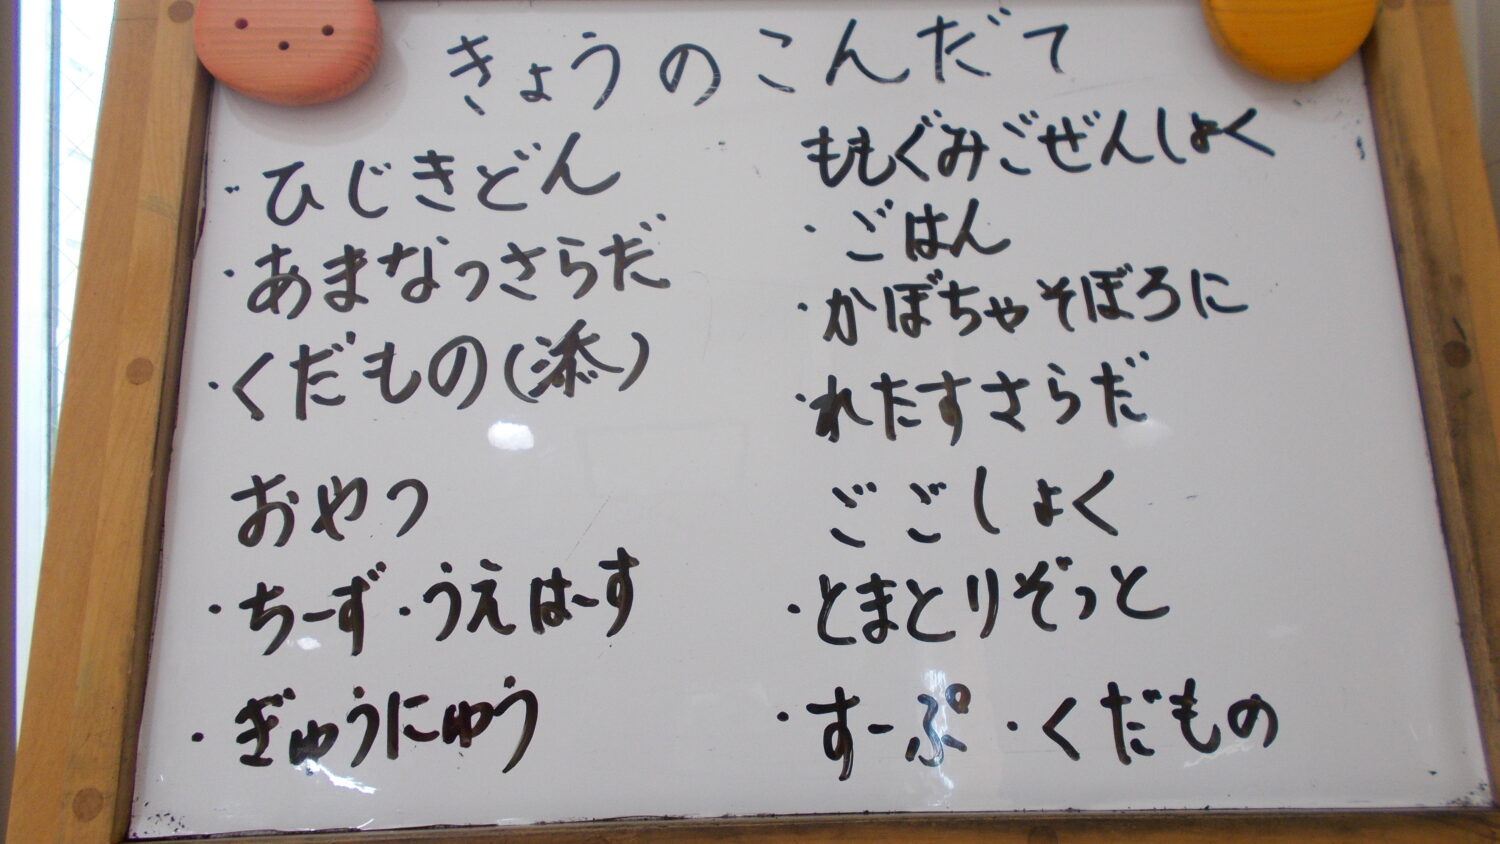 きょうのこんだて
・ひじきどん
・あまなっさらだ
・くだもの(添)
おやつ
・ちーず・うえはーす
・ぎゅうにゅう
ももぐみごぜんしょく
・ごはん
・かぼちゃそぼろに
・れたすさらだ
ごごしょく
・とまとりぞっと
・すーぷ・くだもの